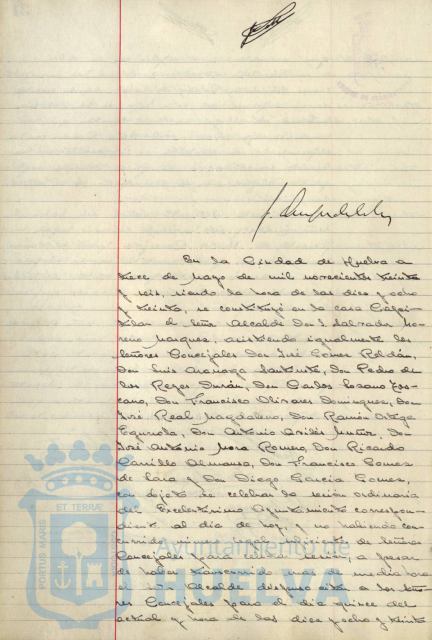 En la Ciudad de Huelva a
trece de Mayo de mil novecientos treinta
y seis, siendo la hora de las diez y ocho
y treinta, se constituyó en la casa Capi-
tular el señor Alcalde Don Salvador Mo-
reno Marquez, asistiendo igualmente los
señores Concejales Don José Gomez Roldán,
Don Luis Santante, Don Pedro de
los Reyes Durán, Don Carlos Lozano Tos-
cano, Don Francisco Olivares Dominguez, Don
José Real Magdaleno, Don Ramón Ortega
Ezquerola, Don Antonio Avilés Muñoz, Don
José Antonio Mora Romero, Don Ricardo
Carrillo Almansa, Don Francisco Gomez
de Lara y Don Diego García Gomez,
con objeto de celebrar la sesión ordinaria
del Excelentísimo Ayuntamiento correspon-
diente al día de hoy, y no habiendo con-
currido número legal suficiente de señores
Concejales para celebrarla, a pesar
de haber transcurrido más de media hora
el Sr. Alcalde dispuso citar a los seño-
res Concejales para el día quince del
actual y hora de las diez y ocho y treinta
PORTUS MARIS ET TERRAE
Ayuntamiento de
HUELVA